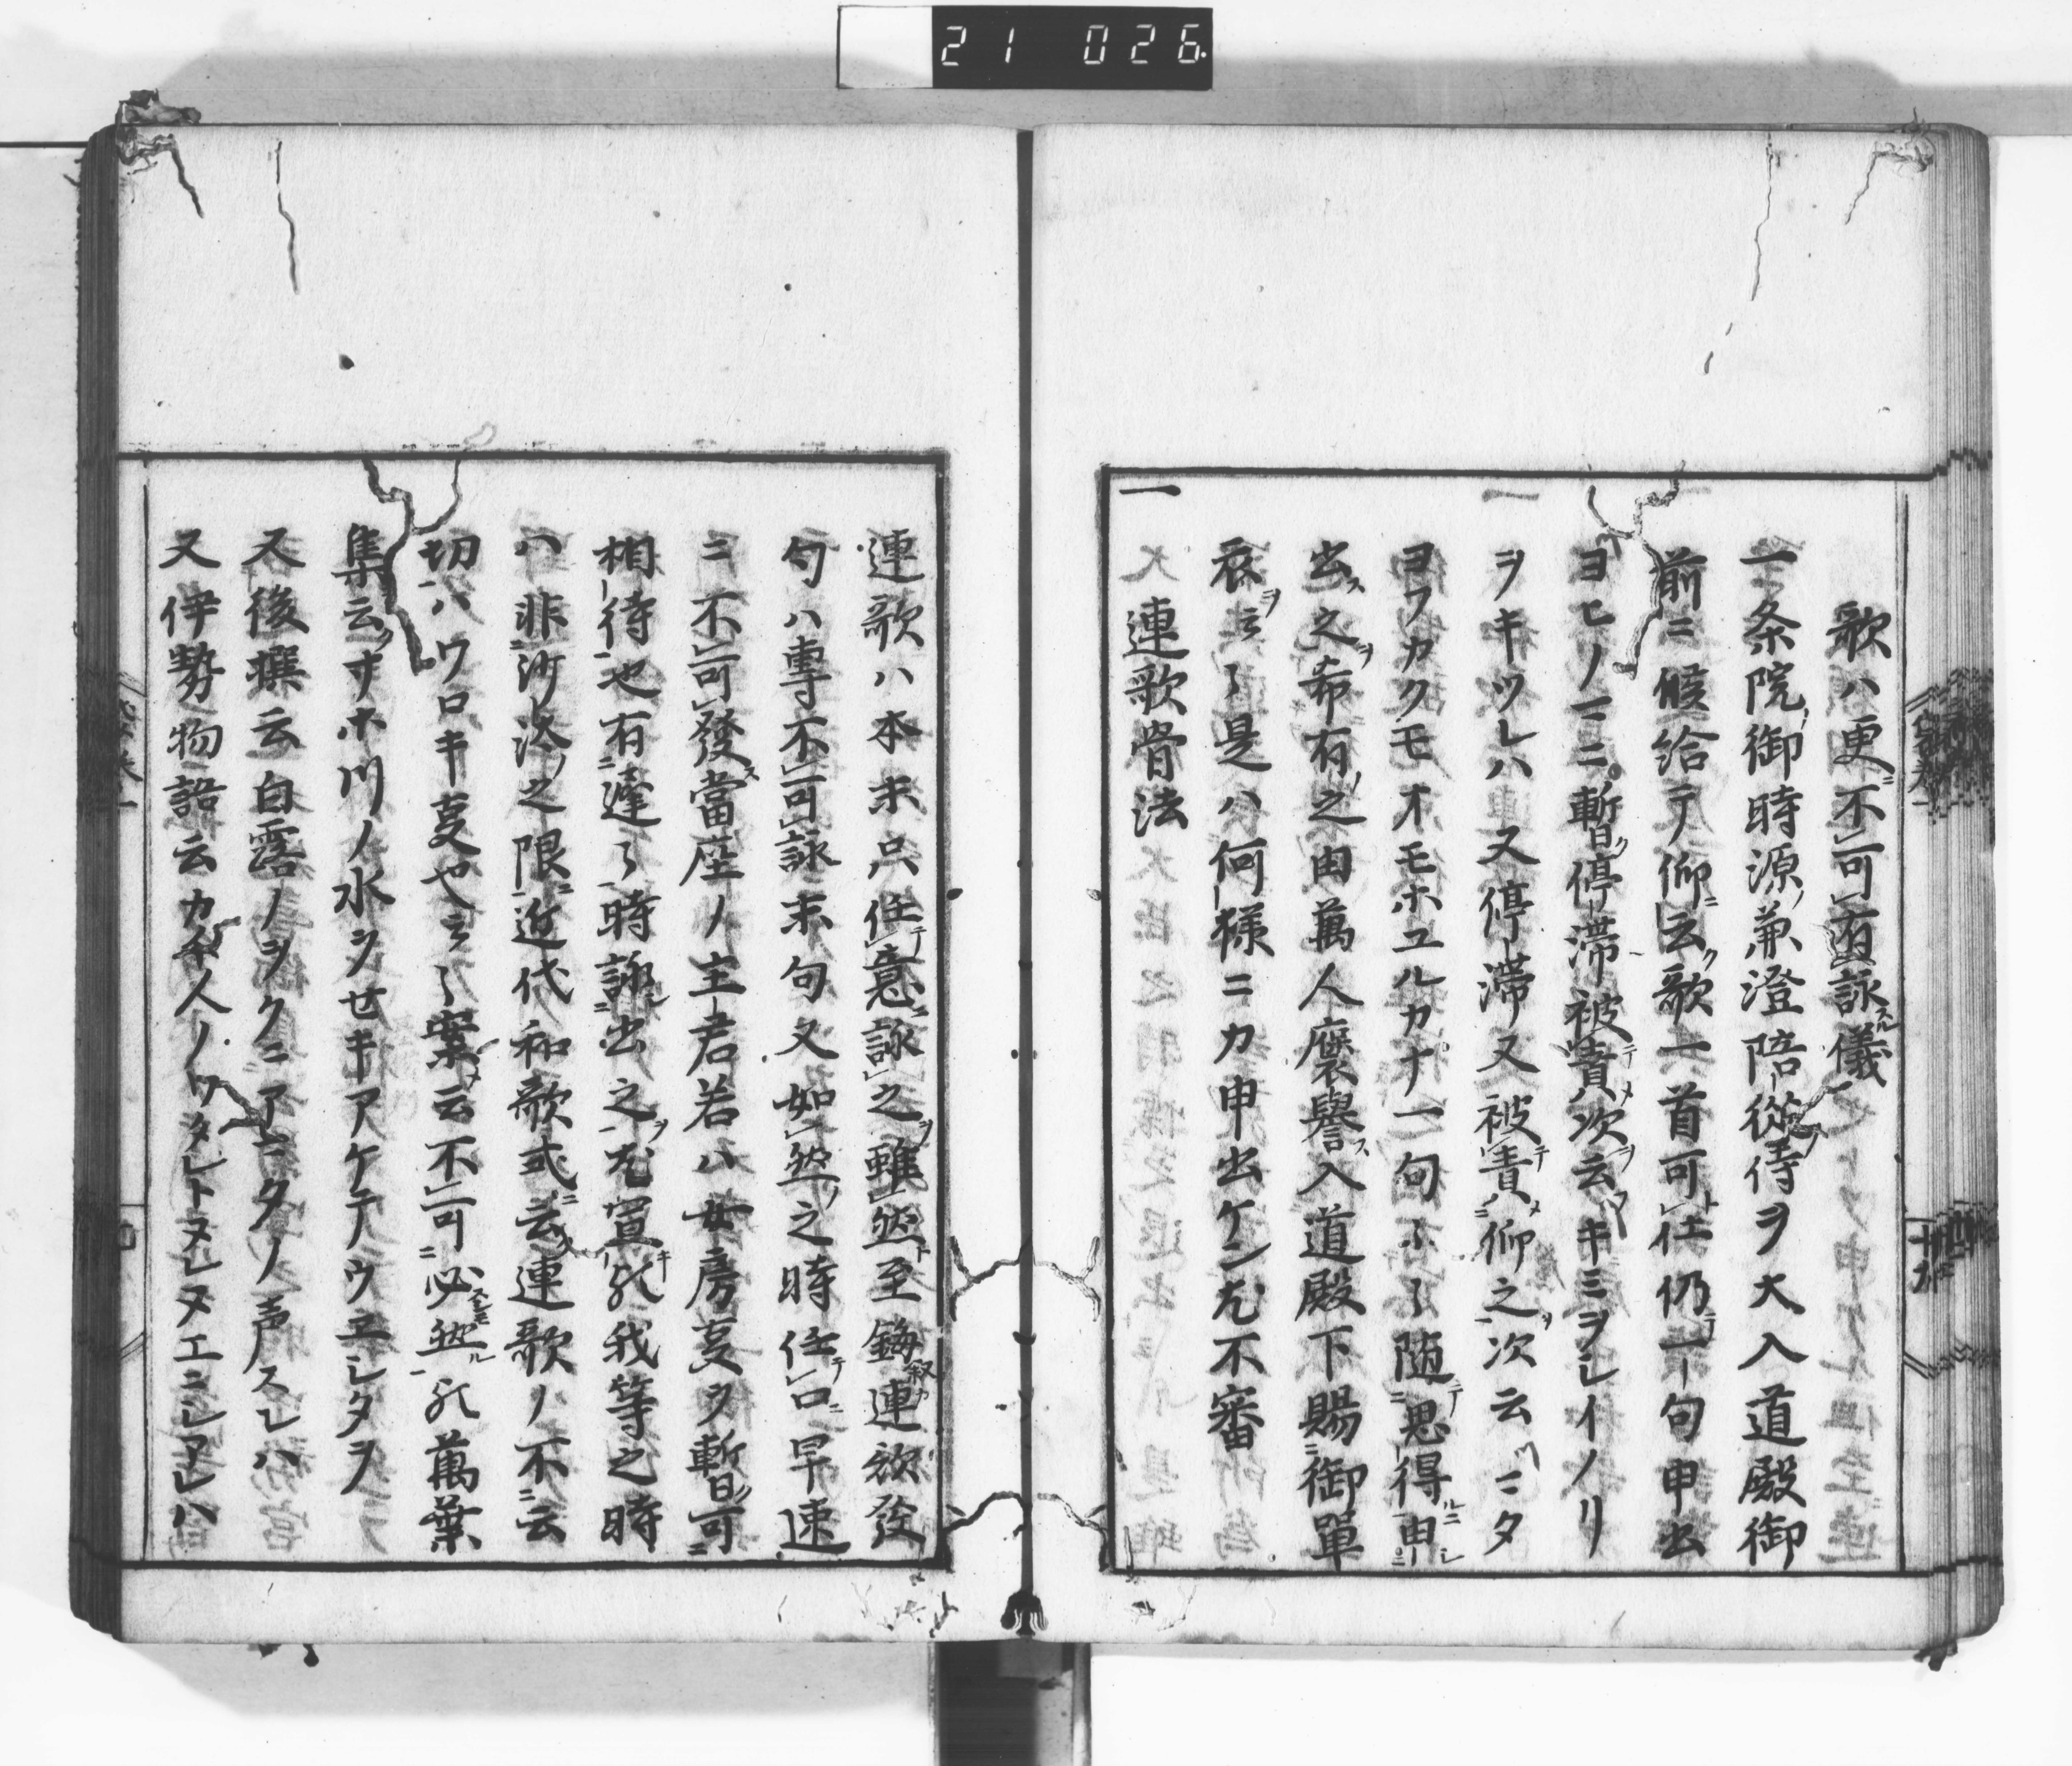 21 026
歌ハ更ニ不可有詠スル儀
一条院御時源ノ兼澄陪従侍ヲ大入道殿御
前ニ候給テ仰ニ云ク歌一首可仕ト仍テ一句申出
ヨヒノ一ニ暫ク停滞被責テメ次ヲ云フキミヲシイノリ
ヲキツレハ又停滞又被責テメ仰之ヲ次云ニタ
ヨフカクモオモホユルカナ一句ニ随テ思得ルニ申シ
出ス之ヲ希有ノ之由萬人褒誉ス入道殿下賜御單
衣ヲ云々是ハ何様ニカ申出ケン尤不審
一 連歌骨法
連歌ハ本末只任テ意ニ詠之ヲ雖然ト至鎖連歌發
句ハ專不可詠末句又如然ノ之時任テ口ニ早速
ニ不可發ス當座ノ主君若ハ女房事ヲ暫ク可
相待也有遅々時詠シ出之ヲ尤宜キ歟我等之時
ハ非沙汰ノ之限ニ近代和歌式ニ云連歌ノ不云
切ハワロキ事也云々案云不可必然スシモル歟萬葉
集云ク サホ川ノ水ヲせキアケテウエシタヲ
又後撰云白露ノヲクニアマタノ声スレハ
又伊勢物語云カチ人ノワタレトヌレヌエニシアレハ
十九